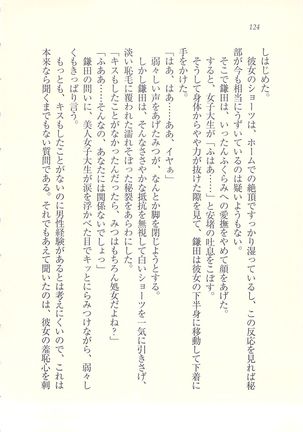 124
しはじめた。
彼女のショーツは、ホームでの絶頂ですっかり湿っているし、この反応を見れば秘
部が今も相当にうずいているのは疑いようもない。
そこで鎌田は、いったんふくらみへの愛撫をやめて顔をあげた。
すると、女子大生が「ふはあ……」と安堵の吐息をこぼす。
そうして身体からやや力が抜けた隙を見て、鎌田は彼女の下半身に移動して下着に
手をかけた。
「はあ、はあ……ああ、イヤぁ」
弱々しい声をあげたミズホが、なんとか脚を閉じようとする。
しかし鎌田は、そんなささやかな抵抗を無視して白いショーツを一気に引きさげ、
淡い恥毛に覆われた濡れそぼった秘裂をあらわにした。
「キスもしたことがなかったんだったら、みつはもちろん処女だよね？」
「ふああ……そんなの、あなたには関係ないでしょっ」
鎌田の問いに、美人女子大生が涙を浮かべた目でキッとにらみつけながら、弱々し
くもきっぱり言う。
もっとも、キスもしたことがないのに男性経験があるとは考えにくいので、これは
本来なら聞くまでもない質問である。それでもあえて聞いたのは、彼女の羞恥心を刺